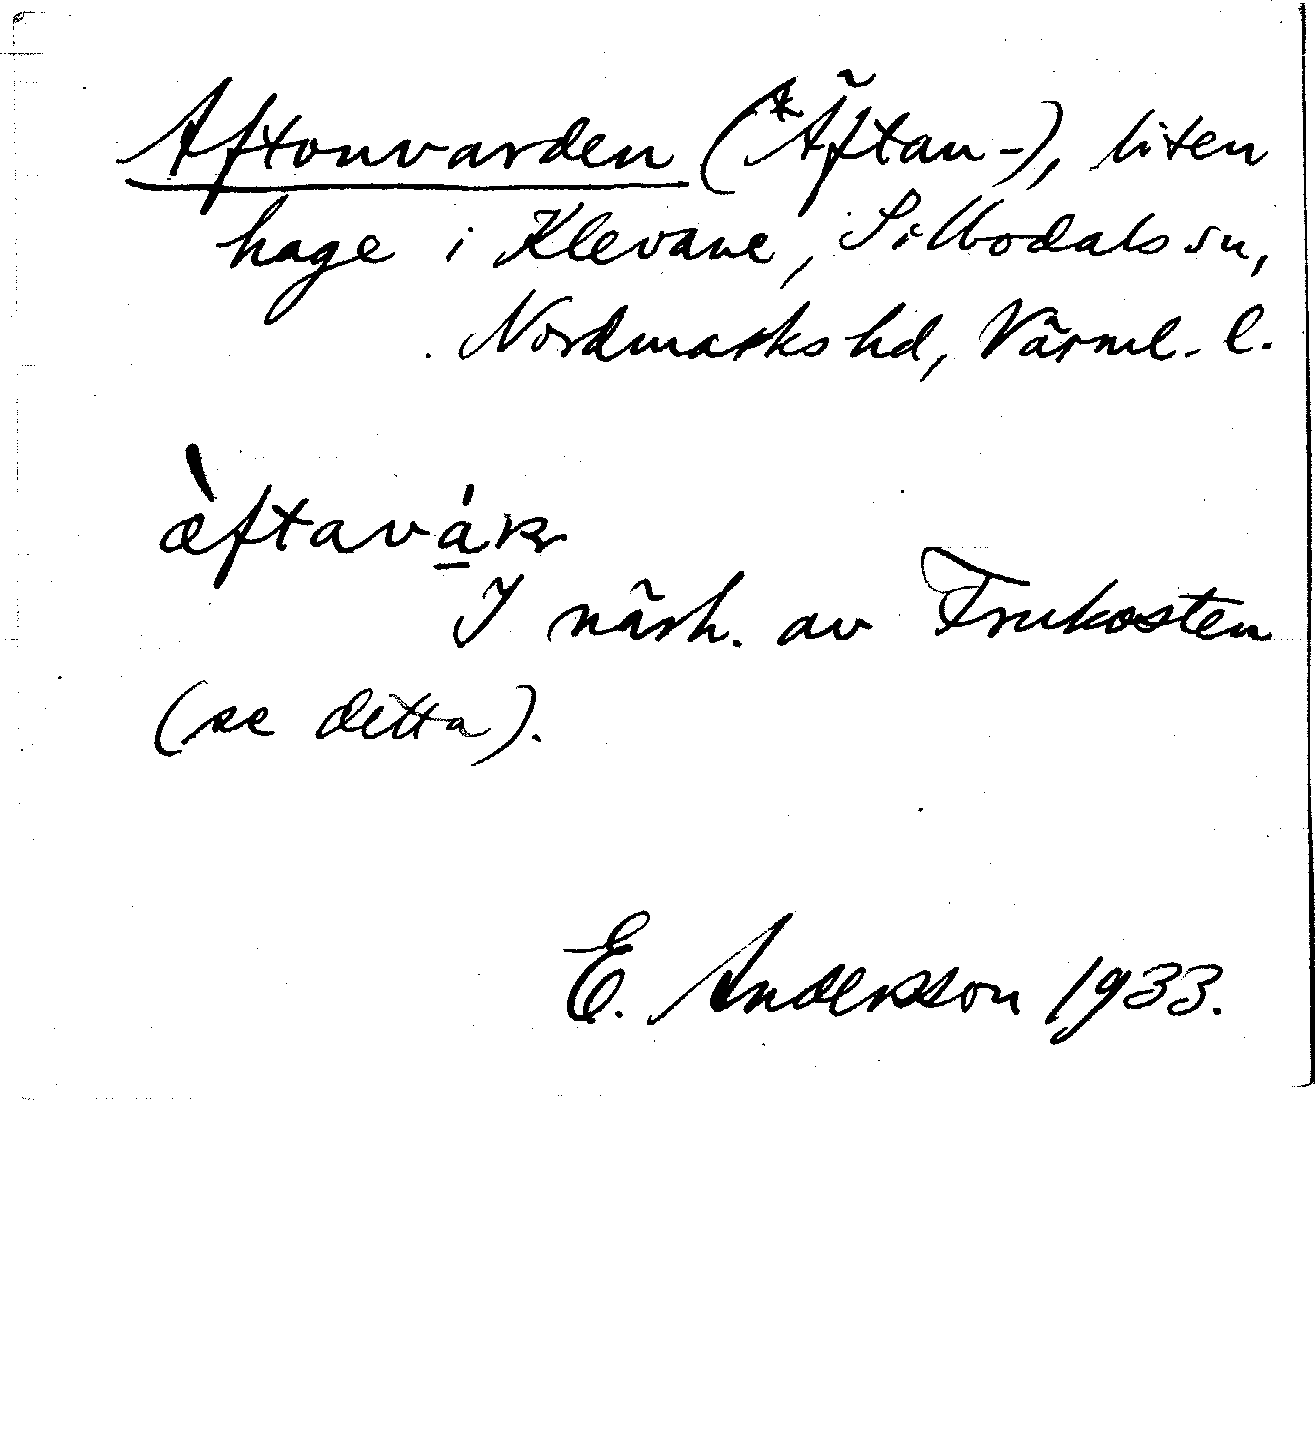 Aftonvarden (*Äftan-), liten
hage i Klevane, Silbodals sn,
Nordmarks hd, Värml. l.
I närh. av Frukosten
(se detta).
E. Anderson 1933.